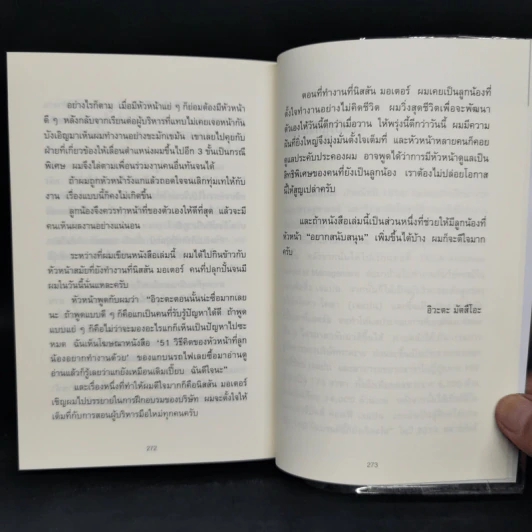 อย่างไรก็ตาม เมื่อมีหัวหน้าแย่ ๆ ก็ย่อมต้องมีหัวหน้า
ดี ๆ หลังกลับจากเรียนต่อผู้บริหารที่แทบไม่เคยเจอหน้ากัน
บังเอิญมาเห็นผมทำงานอย่างขะมักเขม้น เขาเลยไปคุยกับ
ฝ่ายที่เกี่ยวข้องให้เลื่อนตำแหน่งผมขึ้นไปอีก 3 ขั้นเป็นกรณี
พิเศษ ผมจึงไล่ตามเพื่อนร่วมงานคนอื่นทันจนได้
ถ้าผมถูกหัวหน้ารังแกแล้วถอดใจจนเลิกทุ่มเทให้กับงาน
เรื่องแบบนี้ก็คงไม่เกิดขึ้น
ลูกน้องจึงควรทำหน้าที่ของตัวเองให้ดีที่สุด แล้วจะมี
คนเห็นผลงานอย่างแน่นอน
ระหว่างที่ผมเขียนหนังสือเล่มนี้ ผมได้ไปกินข้าวกับ
หัวหน้าสมัยที่ยังทำงานที่นิสสัน มอเตอร์ คนที่ปลุกปั้นจนมี
ผมในวันนี้นั่นแหละครับ
หัวหน้าพูดกับผมว่า "อิวะตะตอนนั้นน่ะซื่อมากเลย
นะ ถ้าพูดแบบดี ๆ ก็คือแกเป็นคนที่รับรู้ปัญหาได้ดี ถ้าพูด
แบบแย่ ๆ ก็คือไม่ว่าจะมองอะไรแกก็เห็นเป็นปัญหาไปซะ
หมด ฉันเห็นโฆษณาหนังสือ '51 วิธีคิดของหัวหน้าที่ลูก
น้องอยากทำงานด้วย' ของแกบนรถไฟเลยซื้อมาอ่านดู
อ่านแล้วก็รู้เลยว่าแกยังเหมือนเดิมเปี๊ยบ ฉันดีใจนะ"
และเรื่องหนึ่งที่ทำให้ผมดีใจมากก็คือนิสสัน มอเตอร์
เชิญผมไปบรรยายในการฝึกอบรมของบริษัท ผมจะตั้งใจให้
เต็มที่กับการสอนผู้บริหารมือใหม่ทุกคนครับ
272
ตอนที่ทำงานที่นิสสัน มอเตอร์ ผมเคยเป็นลูกน้องที่
ตั้งใจทำงานอย่างไม่คิดชีวิต ผมวิ่งสุดชีวิตเพื่อจะพัฒนา
ตัวเองให้วันนี้ดีกว่าเมื่อวาน ให้พรุ่งนี้ดีกว่าวันนี้ ผมมีความ
ฝันที่ยิ่งใหญ่จึงมุ่งมั่นตั้งใจเต็มที่ และหัวหน้าหลายคนก็คอย
ดูแลประคับประคองผม อาจพูดได้ว่าการมีหัวหน้าดูแลเป็น
สิทธิพิเศษของคนที่ยังเป็นลูกน้อง เราต้องไม่ปล่อยโอกาส
นี้ให้สูญเปล่าครับ
และถ้าหนังสือเล่มนี้เป็นส่วนหนึ่งที่ช่วยให้มีลูกน้องที่
หัวหน้า "อยากสนับสนุน" เพิ่มขึ้นได้บ้าง ผมก็จะดีใจมาก
ครับ
อิวะตะ มัตสึโอะ
273